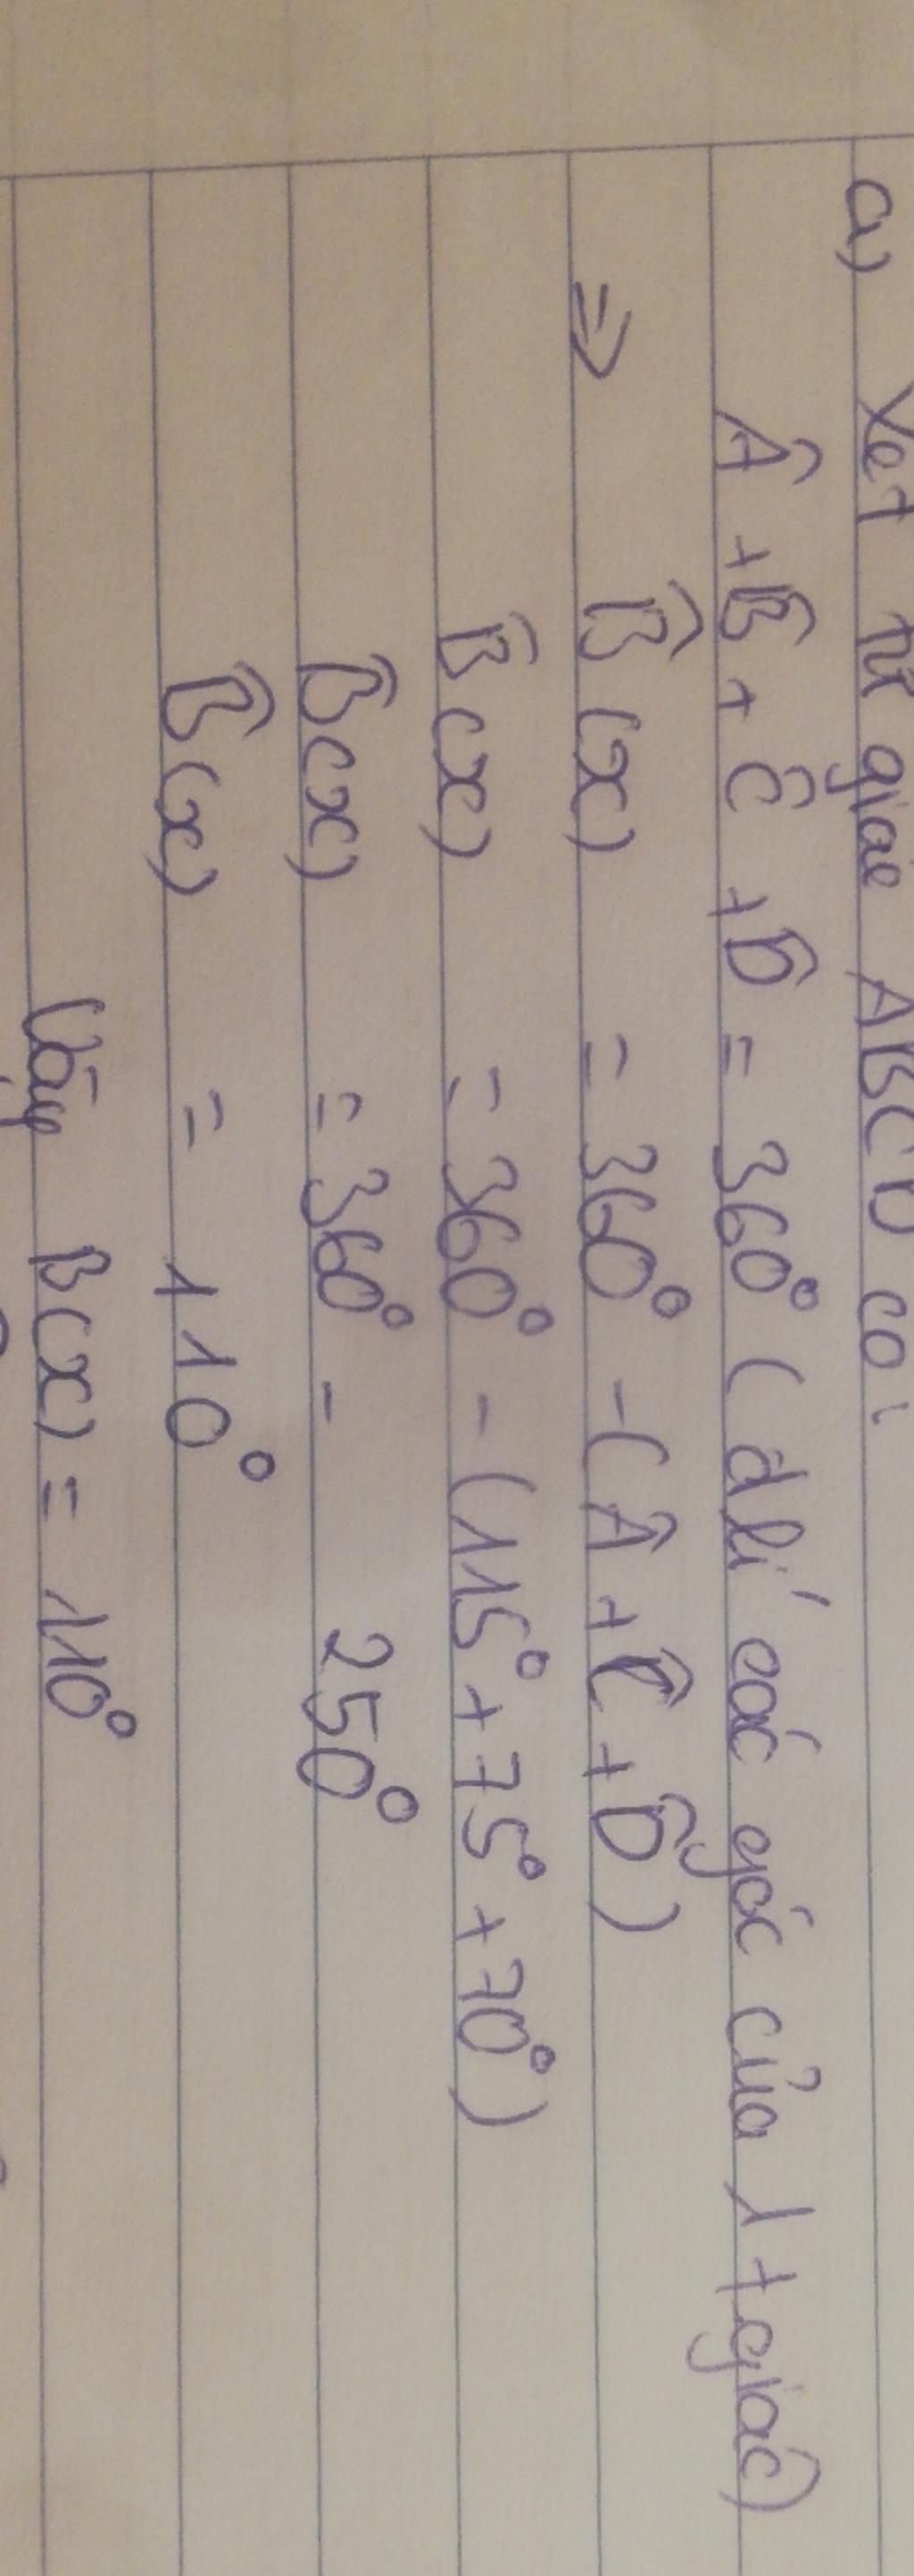 a) Xét tứ giác ABCD có:
Â + B̂ + Ĉ + D̂ = 360° (đlí các góc của 1 tgiác)
⇒ B̂(x) = 360° - (Â + Ĉ + D̂)
B̂(x) = 360° - (115° + 75° + 70°)
B̂(x) = 360° - 250°
B̂(x) = 110°
Vậy B(x) = 110°